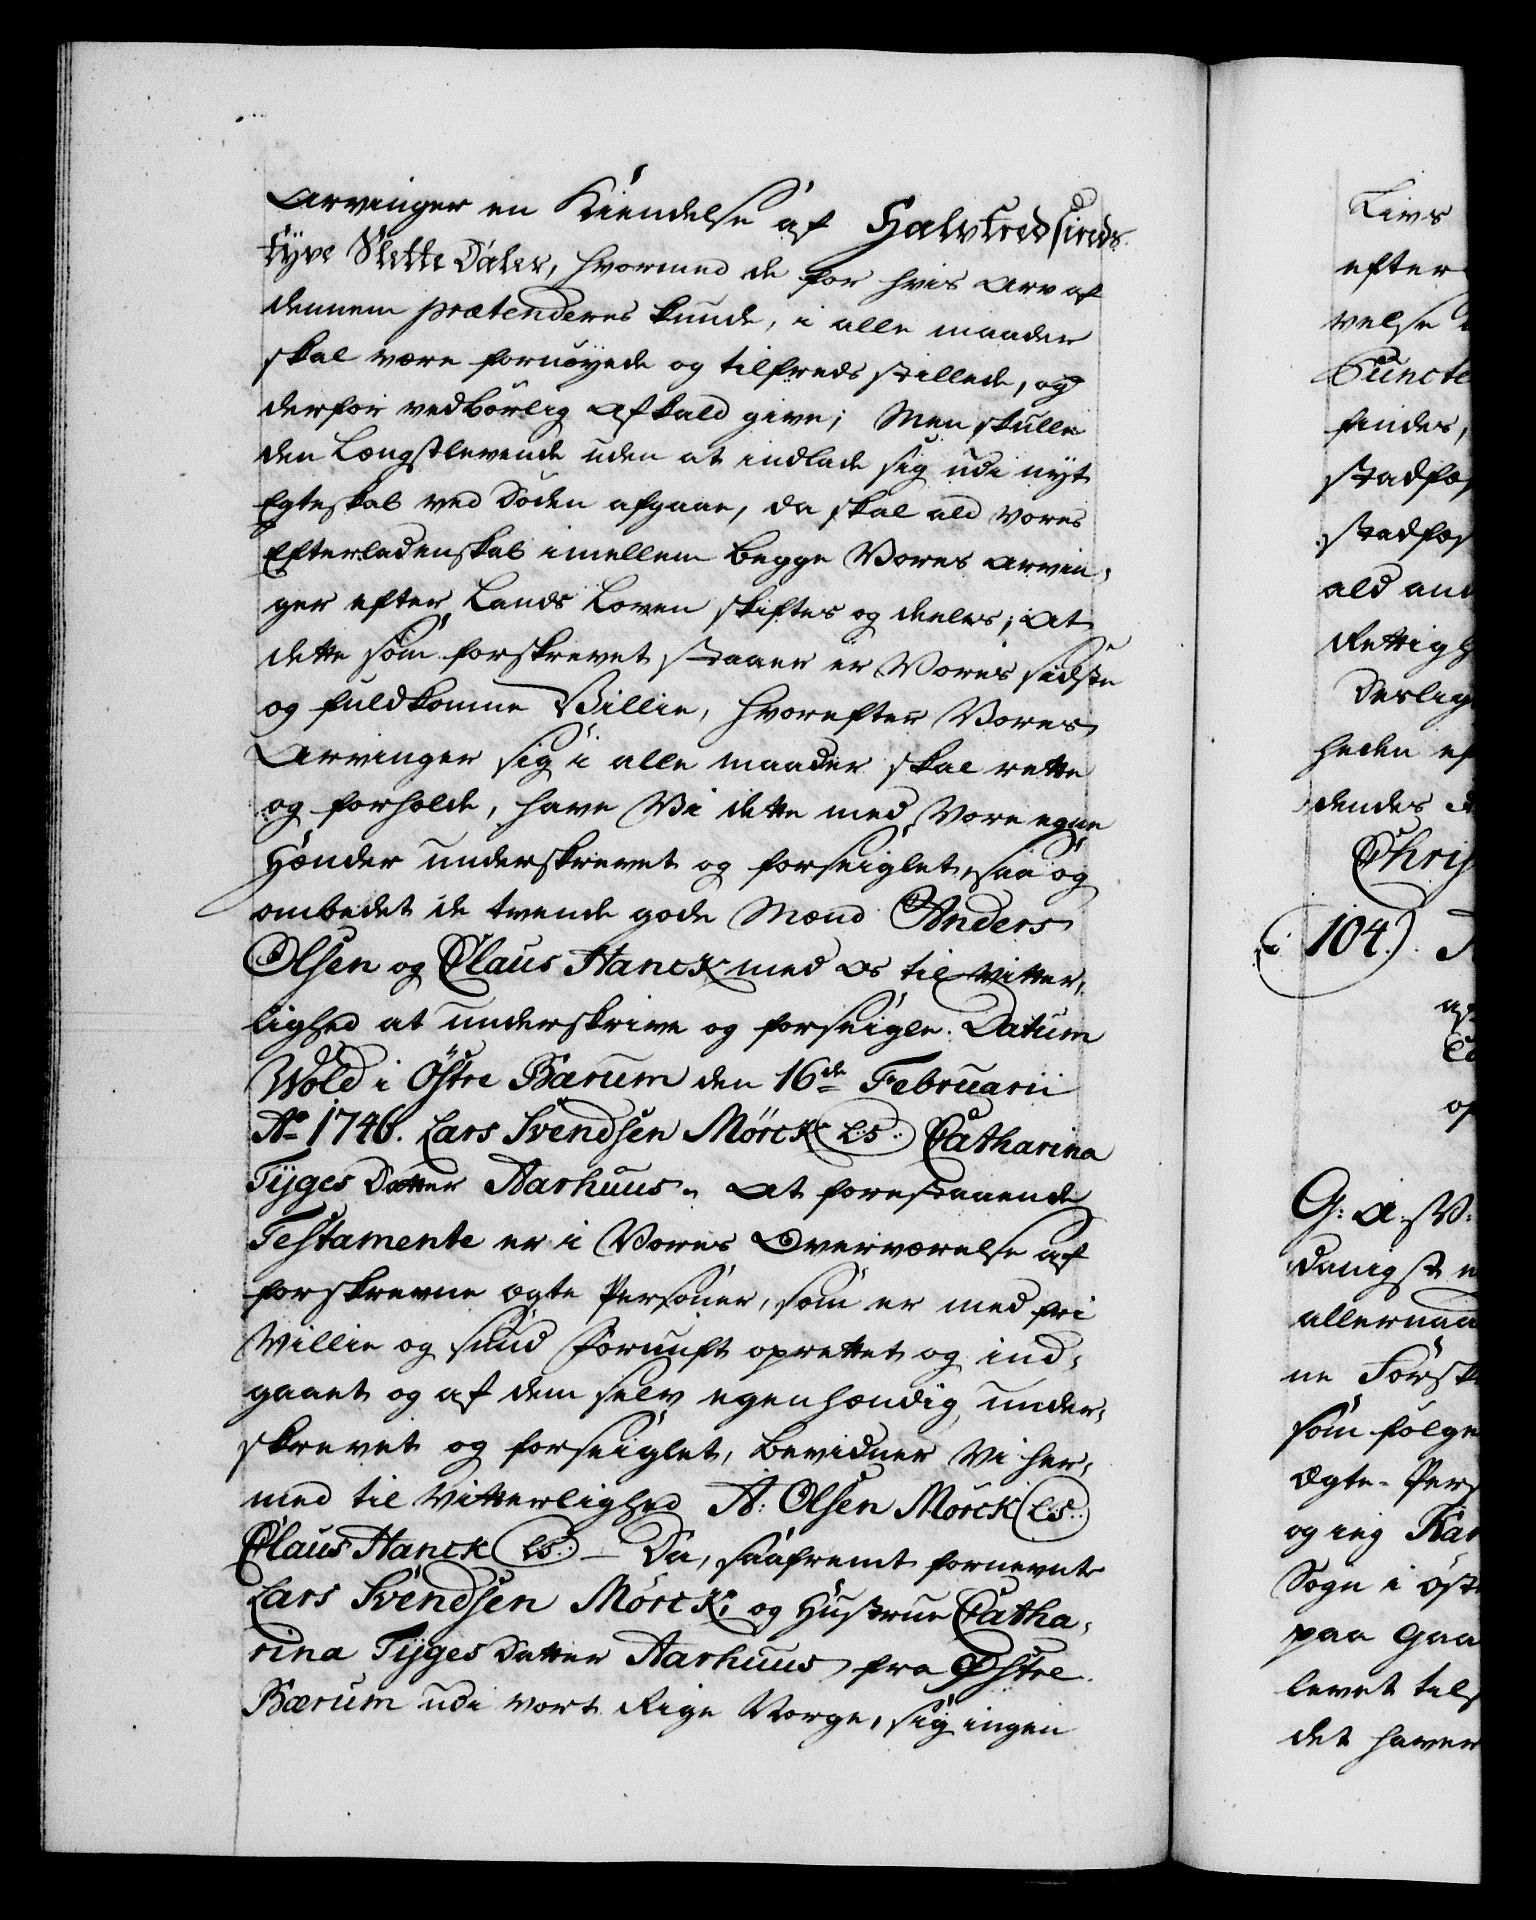 Arvinger en Kiendelse af Halvtredsinds
tyve Slette Daler, hvormed de for hvis Arv af
dennem prætenderes kunde, i alle maader
skal være fornøyede og tilfreds stillede, og
derfor vedbørlig Afkald give; Men skulle
den Længstlevende uden at indlade sig udi nyt
Egteskab ved Døden afgaae, da skal ald vores
Efterladenskab imellem begge Vores Arvin,
ger efter Lands Loven skiftes og deeles; At
dette som forskrevet staaer er Vores sidste
og fuldkomne Villie, hvorefter Vores
Arvinger sig i alle maader skal rette
og forholde, have Vi dette med Vore egne
Hænder underskrevet og forseiglet, saa og
ombedet de tvende gode Mænd Anders
Olsen og Claus Hanck med os til Vitter,
lighed at underskrive og forseigle. Datum
Wold i Østre Bærum den 16de Februarii
Ao 1746. Lars Svendsen Mørck (LS.) Catharina
Tÿges Datter Aarhuus. At forestaaende
Testamente er i Vores Overværelse af
forskrevne ægte Personer, som er med fri
Villie og sund Fornuft oprettet og ind,
gaaet og af dem selv egenhændig under,
skrevet og forseiglet, bevidner Vi her,
med til Vitterlighed A: Olsen Mørck (LS.)
Claus Hanck (LS.) - Da, saafremt fornevnte
Lars Svendsen Mørck, og Hustrue Catha,
rina Tÿges Datter Aarhuus fra Østre
Bærum udi vort Rige Norge, sig ingen
Livs
efter
velse
Puncte
findes,
stadfæs
stadfæs
ald and
Rettigh
Deslig
heden ef
dendes
Chris
104.)
G: A: W:
danigst
allernaa
ne Første
som følge
Ægte-Pers
og ieg Kar
Sogn i Øst
paa Gaa
levet til
det haver